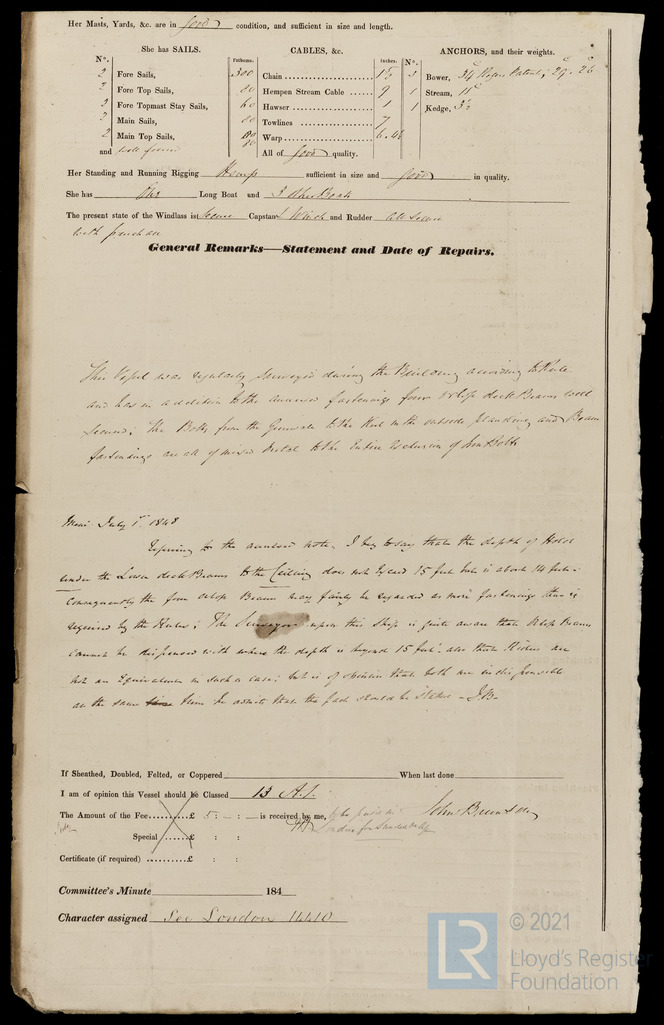 Her Masts, Yards, &c. are in good condition, and sufficient in size and length.
She has SAILS.
CABLES, &c.
ANCHORS, and their weights.
N°.
Fathoms.
Inches.
N°.
2 Fore Sails,
Chain 300
3 Bower,
2 Fore Top Sails,
Hempen Stream Cable 9
1 Stream,
2 Fore Topmast Stay Sails,
Hawser
1 Kedge,
2 Main Sails,
Towlines 7
2 Main Top Sails,
Warp
and well found
All of good quality.
Her Standing and Running Rigging Hemp sufficient in size and good in quality.
She has One Long Boat and 3 other Boats
The present state of the Windlass is Secure Capstan & Winch and Rudder all Secure
with purchase
General Remarks—Statement and Date of Repairs.
This Vessel was regularly Surveyed during the Building according to Rule
and has in addition to the annexed fastenings four orlop deck Beams well
secured; The Bolts from the Gunwale to the Keel in the outside planking and Beam
fastenings are all of mixed Metal to the Entire Exclusion of Iron Bolts
Mem: July 1st. 1848
Referring to the annexed note, I beg to say that the depth of Hold
under the Lower deck Beams to the Ceiling does not Exceed 15 feet but is about 14 feet.
Consequently the four orlop Beams may fairly be regarded as more fastenings than is
required by the Rules; The Surveyor upon this Ship is quite aware that Orlop Beams
cannot be dispensed with where the depth is beyond 15 feet; also that Riders are
not an Equivalent in such a case; but is of opinion that both are indispensible
at the same time he admits that the fact should be stated - J.B-
If Sheathed, Doubled, Felted, or Coppered When last done
I am of opinion this Vessel should be Classed 13 A.1.
The Amount of the Fee £ 5 : - : - is received by me, to be paid in
London for
Special £ : :
Certificate (if required) £ : :
Committee's Minute 184
Character assigned See London 14410
LR
© 2021
Lloyd's Register
Foundation